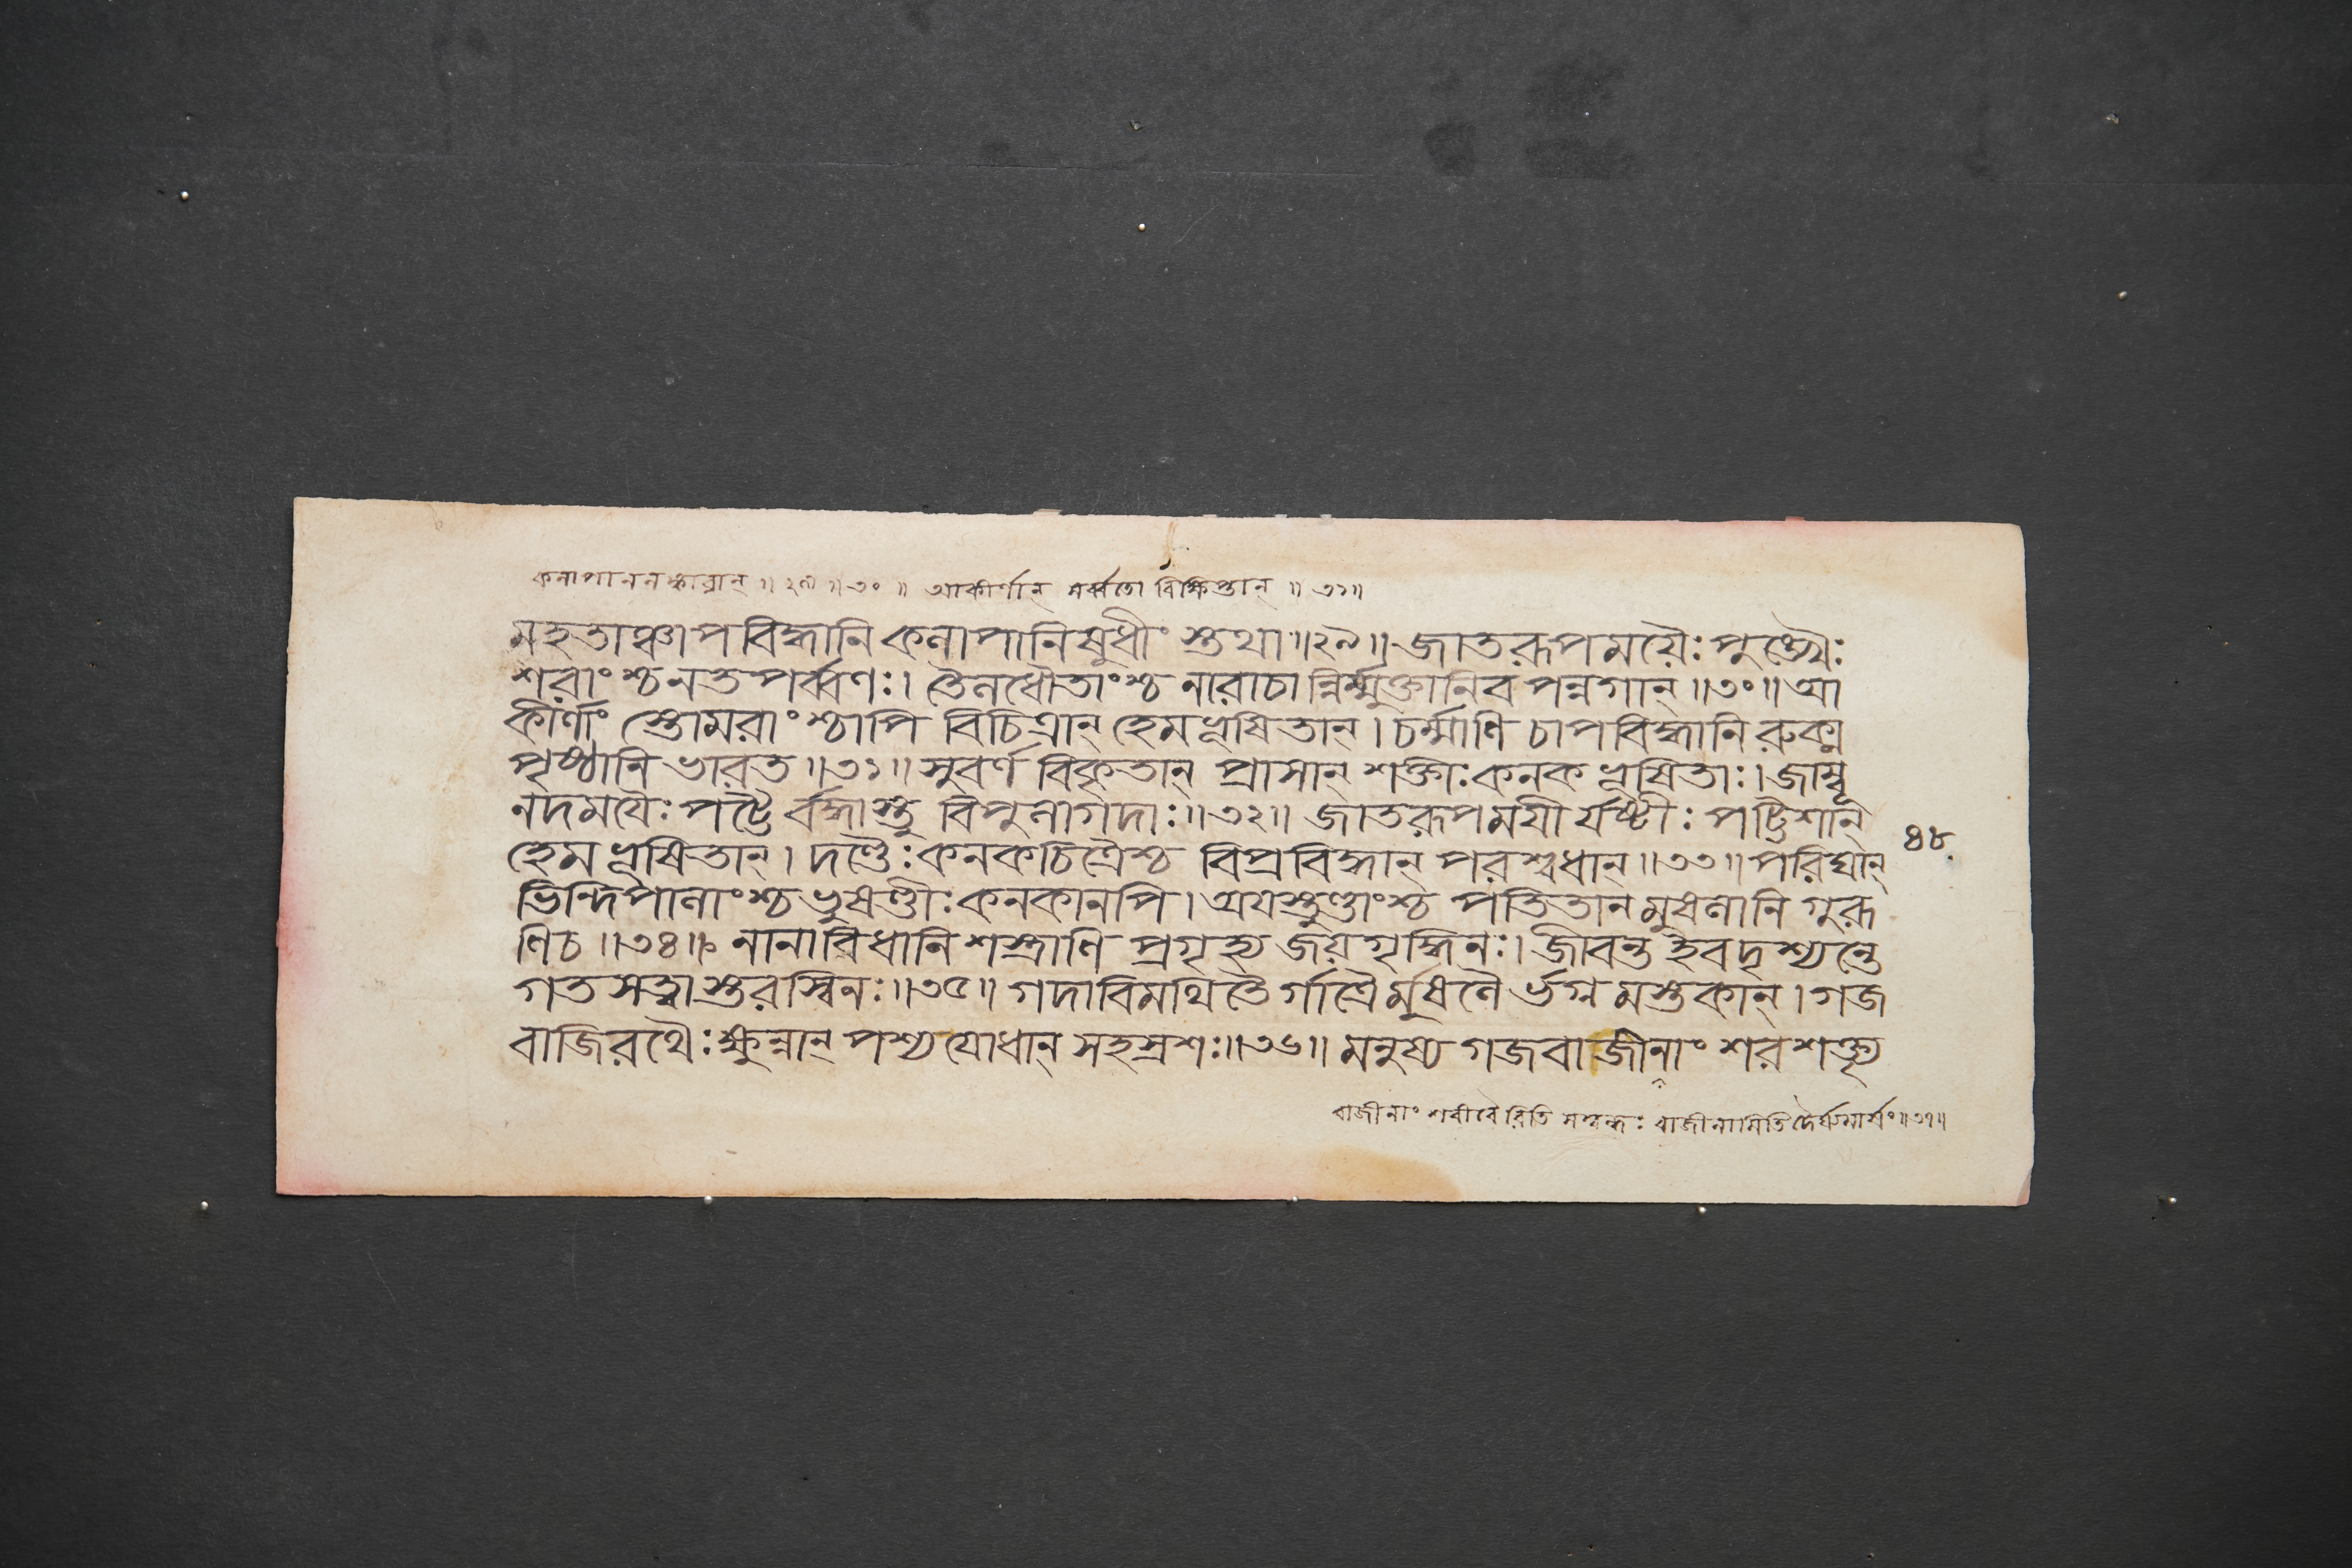 কলাপাননঙ্কারান্ ॥ ২৯ ॥ ৩০ ॥ আকীর্ণান্ সর্ব্বতো বিক্ষিপ্তান্ ॥ ৩১॥
মহতাঞ্চাপবিদ্ধানি কলাপানিষুধীং স্তথা॥২৯॥ জাতরূপময়ৈঃ পুঙ্খৈঃ
শরাংশ্চনতপর্ব্বণঃ। তৈলধৌতাংশ্চ নারাচা ন্নির্ম্মুক্তানিব পন্নগান্॥৩০॥আ
কীর্ণাং স্তোমরাংশ্চাপি বিচিত্রান্ হেমভূষিতান্। চর্ম্মাণি চাপবিদ্ধানি রুক্ম
পৃষ্ঠানি ভারত॥৩১॥ সুবর্ণ বিকৃতান্ প্রাসান্ শক্তীঃ কনকভূষিতাঃ। জাম্বূ
নদময়ৈঃ পট্টৈ র্বদ্ধাস্তু বিপুলাগদাঃ॥৩২॥ জাতরূপময়ী র্যষ্টীঃ পট্টিশান্
হেমভূষিতান্। দণ্ডৈঃ কনকচিত্রৈশ্চ বিপ্রবিদ্ধান্ পরশ্বধান্॥৩৩॥ পরিঘান্
ভিন্দিপালাংশ্চ ভুষণ্ডীঃ কনকানপি। অয়স্তুণ্ডাংশ্চ পতিতান মুষলানি গুরূ
ণিচ॥৩৪॥ নানাবিধানি শস্ত্রাণি প্রগৃহ্য জয়গৃদ্ধিনঃ। জীবন্ত ইবদৃশ্যন্তে
গতসত্ত্বাস্তরস্বিনঃ॥৩৫॥ গদাবিমথিতৈ র্গাত্রৈর্মুষলৈ র্ভগ্নমস্তকান্। গজ
বাজিরথৈঃ ক্ষুন্নান্ পশ্যযোধান্ সহস্রশঃ॥৩৬॥ মনুষ্য গজবাজীনাং শরশক্ত্যৃ
৪৮
বাজীনাং শরীরৈ রিতি সম্বন্ধঃ বাজীনামিতি দৈর্ঘ্যমার্ষং॥৩৭॥